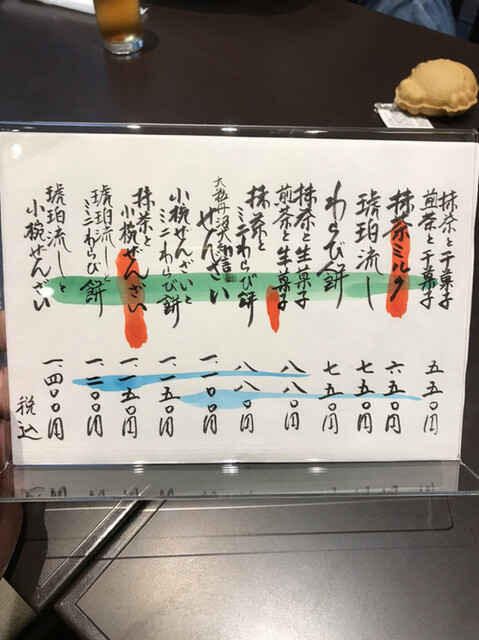 抹茶と干菓子
煎茶と干菓子
五五〇円
抹茶ミルク
六五〇円
琥珀流し
七五〇円
わらび餅
七五〇円
抹茶と生菓子
煎茶と生菓子
八八〇円
抹茶と
ミニわらび餅
八八〇円
ぜんざい
一、一〇〇円
小椀ぜんざいと
ミニわらび餅
一、一五〇円
抹茶と
小椀ぜんざい
一、一五〇円
琥珀流しと
ミニわらび餅
一、二〇〇円
琥珀流しと
小椀ぜんざい
一、四〇〇円
税込